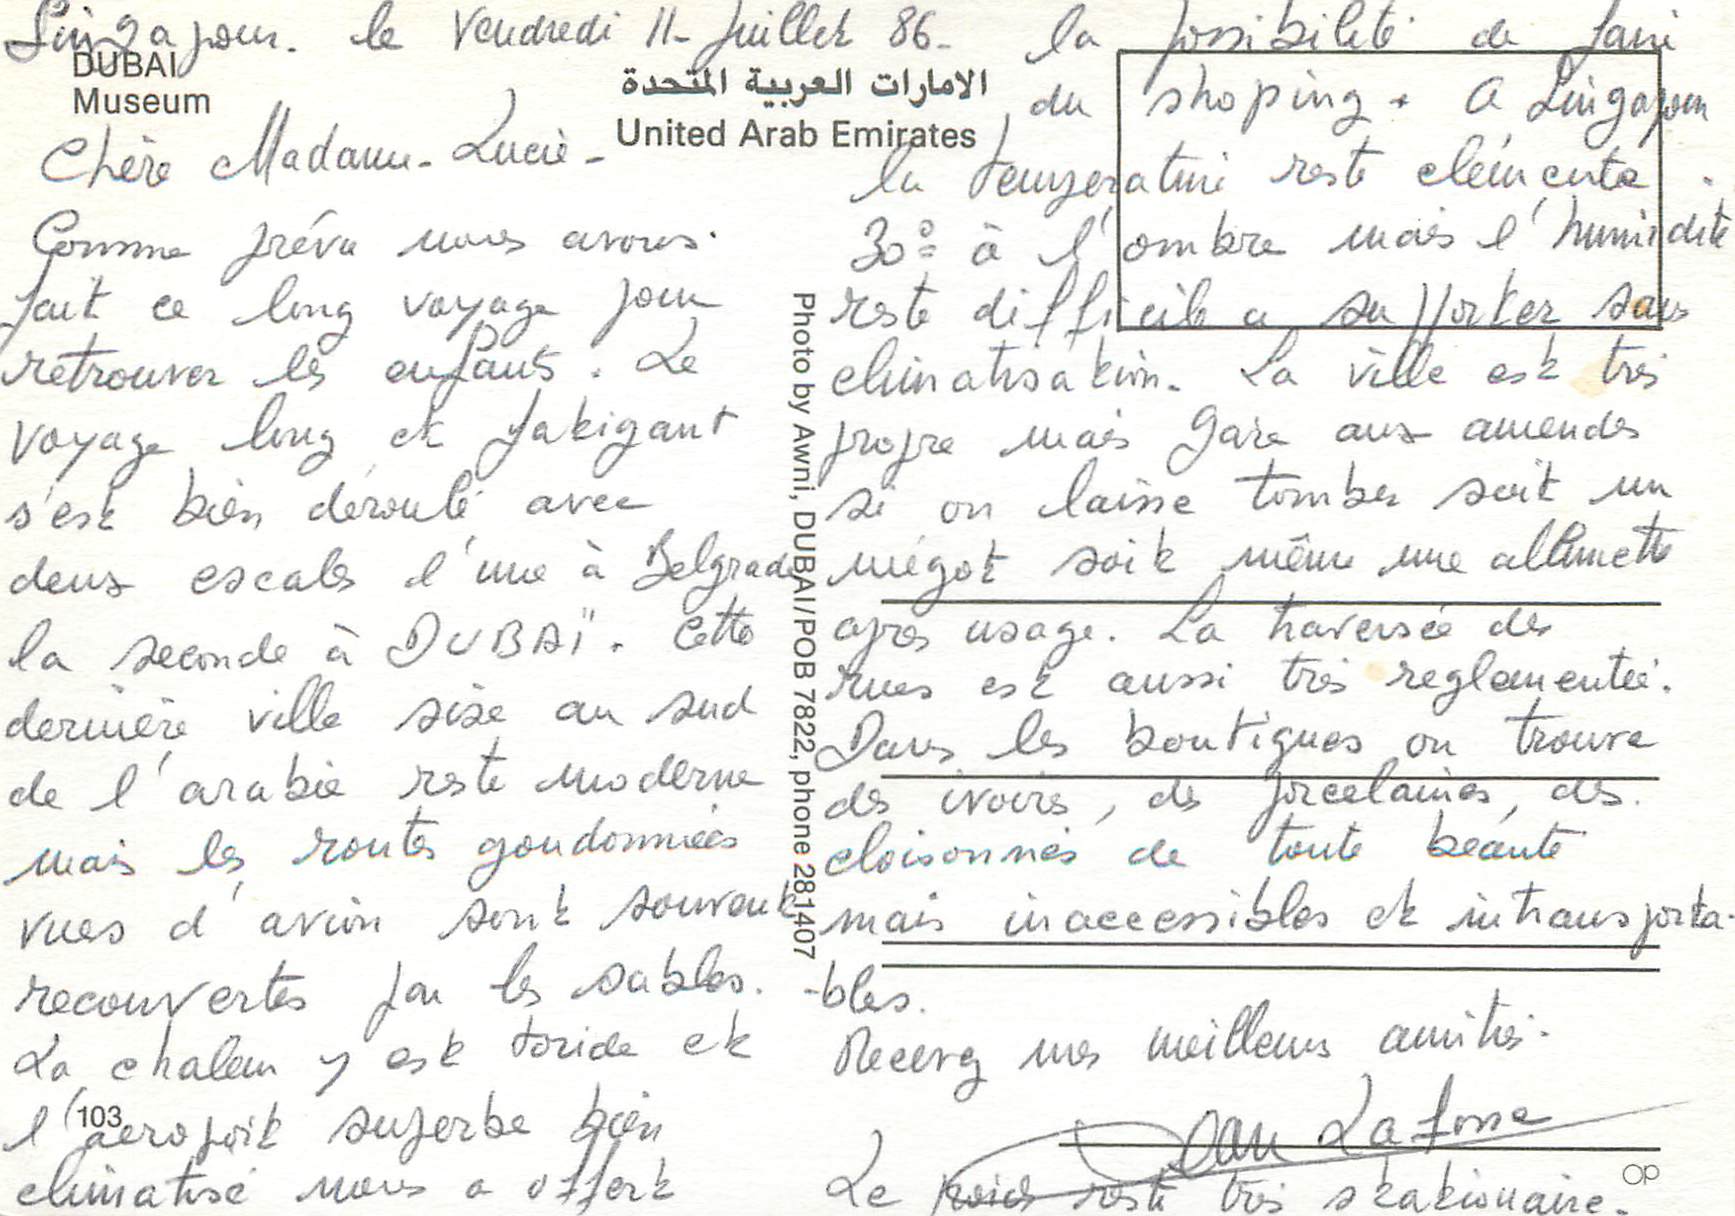 Singapour. le Vendredi 11 - Juillet 86 -
DUBAI
Museum
الامارات العربية المتحدة
United Arab Emirates
Chère Madame - Lucie -
Comme prévu nous avons
fait ce long voyage pour
retrouver les enfants. Le
voyage long et fatigant
s'est bien déroulé avec
deux escales l'une à Belgrade
la seconde à DUBAÏ. Cette
dernière ville sise au sud
de l'arabie reste moderne
mais les routes goudonnées
vues d'avion sont souvent
recouvertes par les sables.
La chaleur y est toride et
l'aeroport superbe bien
103
climatisé nous a offert
Photo by Awni, DUBAI/POB 7822, phone 281407
la possibilité de faire
du shoping. A Singapour
la température reste clémente
30° à l'ombre mais l'humidité
reste difficile a supporter sans
climatisation. La ville est très
propre mais gare aux amendes
si on laisse tomber soit un
mégot soit même une allumette
apres usage. La traversée des
rues est aussi très reglementée.
Dans les boutiques on trouve
des ivoires, des porcelaines, des
cloisonnés de toute beauté
mais inaccessibles et intransporta-
-bles.
Recevez mes meilleures amitiés.
Jean Lafosse
Le poids reste très stationaire.
OP